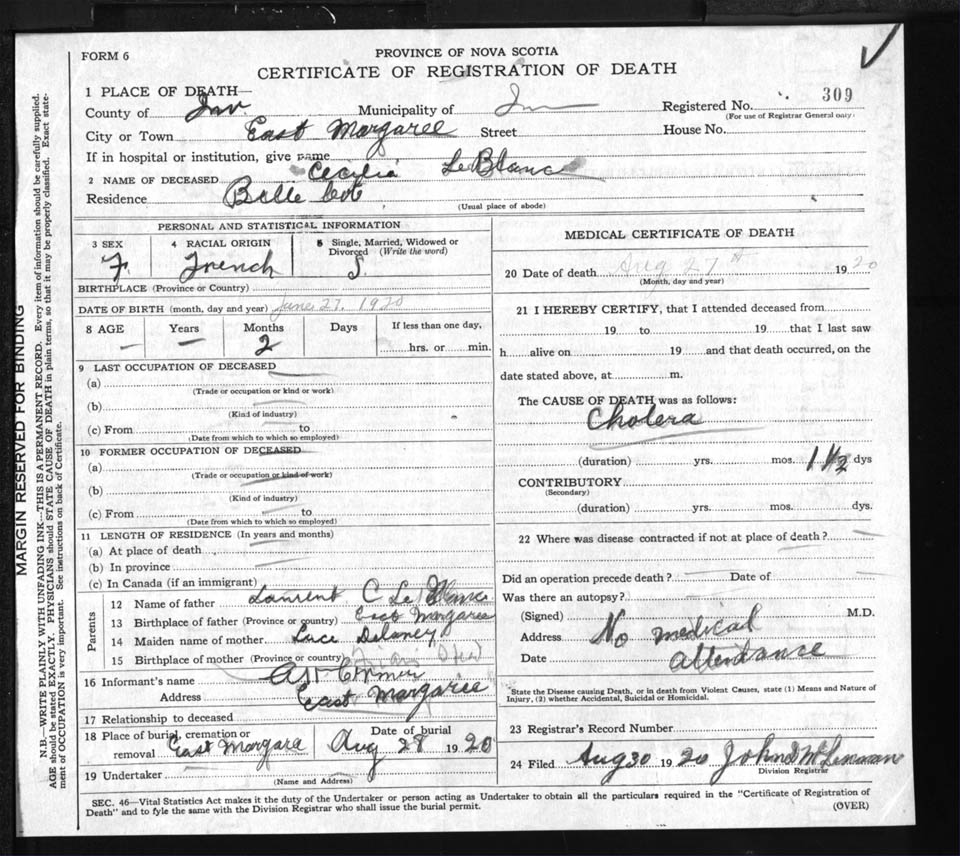 FORM 6
PROVINCE OF NOVA SCOTIA
CERTIFICATE OF REGISTRATION OF DEATH
1 PLACE OF DEATH—
County of Inv. Municipality of Inv Registered No. 309
(For use of Registrar General only)
City or Town East Margaree Street House No.
If in hospital or institution, give name
2 NAME OF DECEASED Cecilia LeBlanc
Residence Belle Cote
(Usual place of abode)
PERSONAL AND STATISTICAL INFORMATION
3 SEX 4 RACIAL ORIGIN 5 Single, Married, Widowed or Divorced (Write the word)
F. French S.
BIRTHPLACE (Province or Country)
DATE OF BIRTH (month, day and year) June 27. 1920
8 AGE Years Months Days If less than one day,
— — 2 hrs. or min.
9 LAST OCCUPATION OF DECEASED
(a)
(Trade or occupation or kind or work)
(b)
(Kind of industry)
(c) From to
(Date from which to which so employed)
10 FORMER OCCUPATION OF DECEASED
(a)
(Trade or occupation or kind of work)
(b)
(Kind of industry)
(c) From to
(Date from which to which so employed)
11 LENGTH OF RESIDENCE (In years and months)
(a) At place of death
(b) In province
(c) In Canada (if an immigrant)
Parents
12 Name of father Laurent C Le Blanc
13 Birthplace of father (Province or country) East Margaree
14 Maiden name of mother Luce Delaney
15 Birthplace of mother (Province or country) Friars Head
16 Informant's name
Address East Margaree
17 Relationship to deceased
18 Place of burial, cremation or removal East Margara Date of burial Aug 28 1920
19 Undertaker
(Name and Address)
MEDICAL CERTIFICATE OF DEATH
20 Date of death Aug 27th 1920
(Month, day and year)
21 I HEREBY CERTIFY, that I attended deceased from
19 to 19 that I last saw
h alive on 19 and that death occurred, on the
date stated above, at m.
The CAUSE OF DEATH was as follows:
Cholera
(duration) yrs. mos. 1 1/2 dys
CONTRIBUTORY
(Secondary)
(duration) yrs. mos. dys.
22 Where was disease contracted if not at place of death?
Did an operation precede death? Date of
Was there an autopsy?
(Signed) M.D.
Address No medical
Date Attendance
State the Disease causing Death, or in death from Violent Causes, state (1) Means and Nature of
Injury, (2) whether Accidental, Suicidal or Homicidal.
23 Registrar's Record Number
24 Filed Aug 30 1920 John D McLennan
Division Registrar
SEC. 46—Vital Statistics Act makes it the duty of the Undertaker or person acting as Undertaker to obtain all the particulars required in the "Certificate of Registration of
Death" and to fyle the same with the Division Registrar who shall issue the burial permit. (OVER)
MARGIN RESERVED FOR BINDING
N.B.—WRITE PLAINLY WITH UNFADING INK—THIS IS A PERMANENT RECORD. Every item of information should be carefully supplied.
AGE should be stated EXACTLY. PHYSICIANS should STATE CAUSE OF DEATH in plain terms, so that it may be properly classified. Exact state-
ment of OCCUPATION is very important. See instructions on back of Certificate.